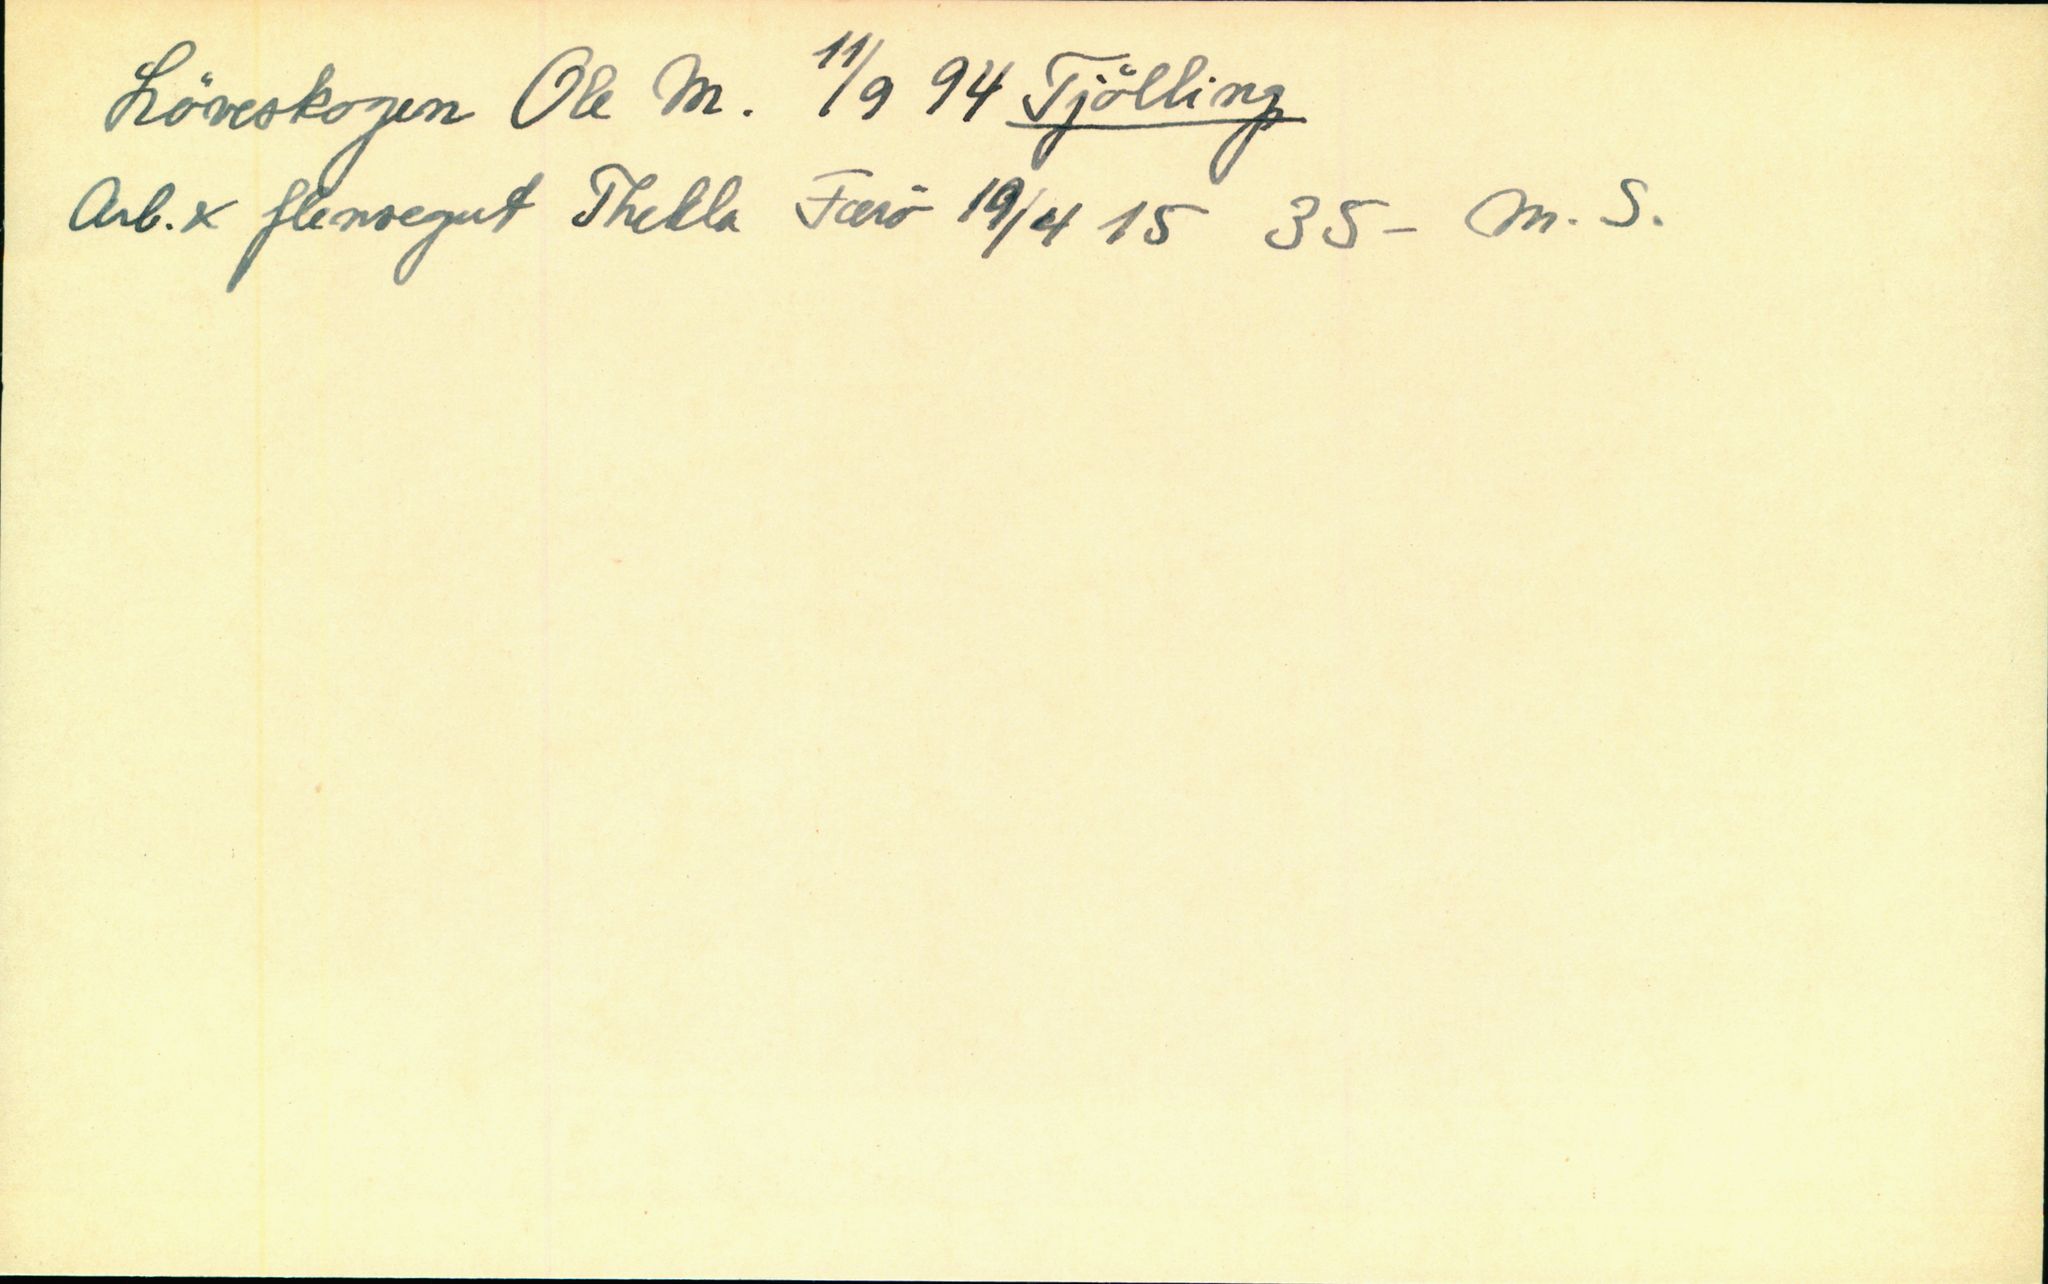 Löveskogen Ole M. 11/9 94 Tjölling
Arb. x flensegut Thekla Færö 19/4 15 35- M. S.